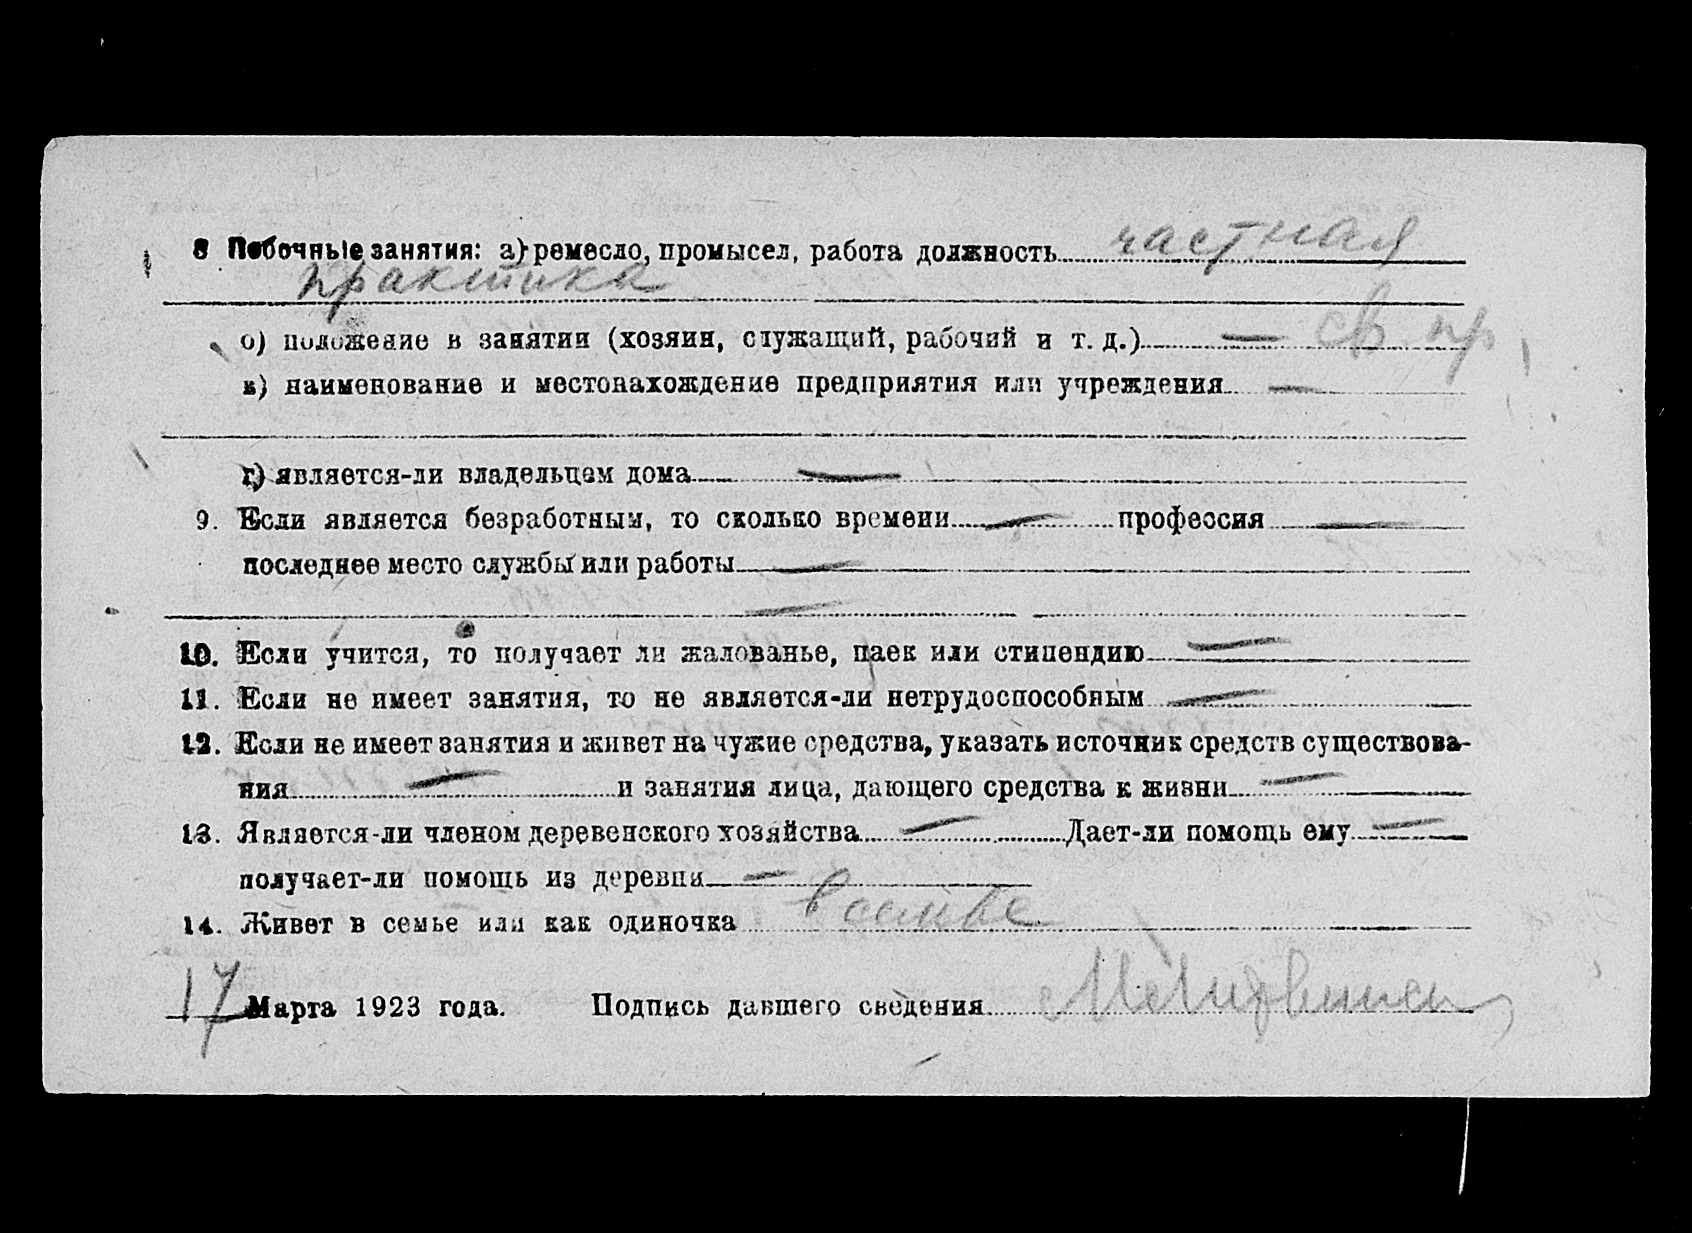 8 Побочные занятия: а) ремесло, промысел, работа должность частная
практика
о) положение в занятии (хозяин, служащий, рабочий и т. д.) — св. пр
в) наименование и местонахождение предприятия или учреждения —
г) является-ли владельцем дома —
9. Если является безработным, то сколько времени — профессия —
последнее место службы или работы —
—
10. Если учится, то получает ли жалованье, паек или стипендию —
11. Если не имеет занятия, то не является-ли нетрудоспособным —
12. Если не имеет занятия и живет на чужие средства, указать источник средств существова-
ния — и занятия лица, дающего средства к жизни —
13. Является-ли членом деревенского хозяйства — Дает-ли помощь ему —
получает-ли помощь из деревни —
14. Живет в семье или как одиночка в семье
17 Марта 1923 года. Подпись давшего сведения